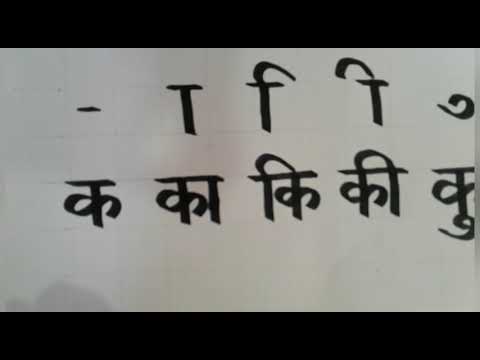 - ा ि ी ु
क का कि की कु